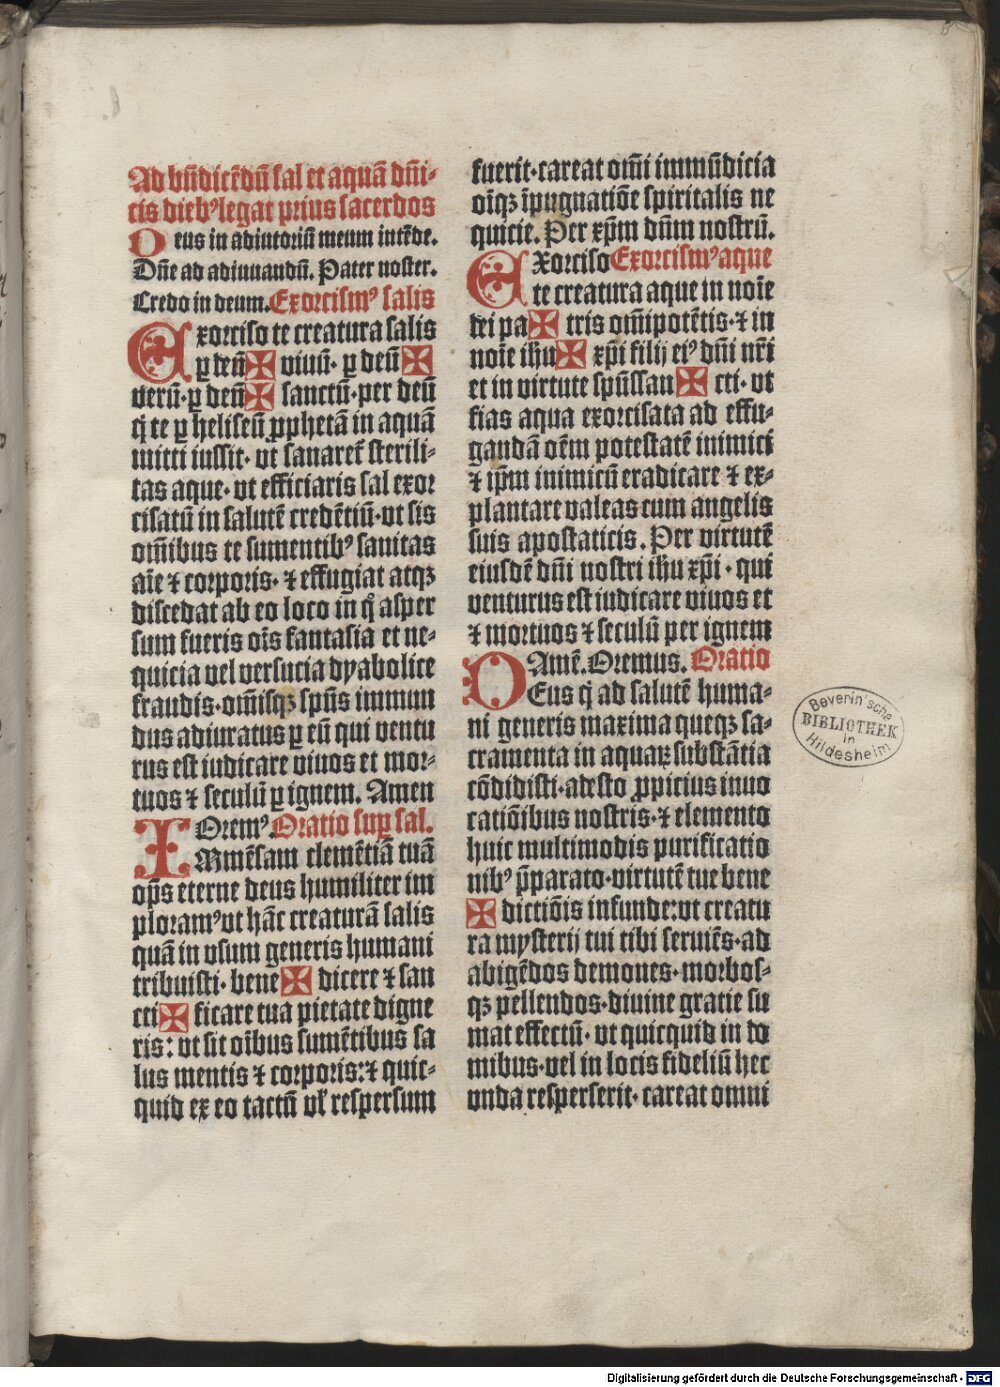 Ad bñdicẽdũ sal et aquã dñi-
cis diebꝰ legat prius sacerdos
Deus in adiutoriũ meum intẽde.
Dñe ad adiuuandũ. Pater noster.
Credo in deum. Exorcismꝰ salis
Exorciso te creatura salis
ꝑ deũ ✠ viuũ· ꝑ deũ ✠
verũ· ꝑ deũ ✠ sanctũ· per deũ
q̃ te ꝑ heliseũ ꝓphetã in aquã
mitti iussit· vt sanaret̃ sterili-
tas aque· vt efficiaris sal exor
cisatũ in salutẽ credẽtiũ· vt sis
om̃ibus te sumentibꝰ sanitas
aĩe ⁊ corporis· ⁊ effugiat atqꝫ
discedat ab eo loco in q̊ asper
sum fueris oĩs fantasia et ne-
quicia vel versucia dyabolice
fraudis· om̃isqꝫ spũs immun
dus adiuratus ꝑ eũ qui ventu
rus est iudicare viuos et mor-
tuos ⁊ seculũ ꝑ ignem. Amen
Oremꝰ. Oratio suꝑ sal.
IMmẽsam clemẽtiã tuã
op̃s eterne deus humiliter im
ploramꝰ vt hãc creaturã salis
quã in vsum generis humani
tribuisti· bene ✠ dicere ⁊ san
cti ✠ ficare tua pietate digne
ris: vt sit oĩbus sumẽtibus sa
lus mentis ⁊ corporis: ⁊ quic-
quid ex eo tactũ vl̛ respersum
fuerit· careat om̃i immũdicia
oĩqꝫ ĩpugnatiõe spiritalis ne
quicie. Per xp̃m dñm nostrũ.
EXorciso Exorcismꝰ aque
te creatura aque in noĩe
dei pa ✠ tris om̃ipotẽtis· ⁊ in
noĩe ihu ✠ xp̃i filij eiꝰ dñi nr̃i
et in virtute spũssan ✠ cti· vt
fias aqua exorcisata ad effu-
gandã oẽm potestatẽ inimici
⁊ ip̃m inimicũ eradicare ⁊ ex-
plantare valeas cum angelis
suis apostaticis. Per virtutẽ
eiusdẽ dñi nostri ihu xp̃i· qui
venturus est iudicare viuos et
⁊ mortuos ⁊ seculũ per ignem
Amẽ. Oremus. Oratio
DEus q̃ ad salutẽ huma-
ni generis maxima queqꝫ sa-
cramenta in aquaꝝ substãtia
cõdidisti· adesto ꝓpicius inuo
catiõibus nostris· ⁊ elemento
huic multimodis purificatio
nibꝰ p̃parato· virtutẽ tue bene
✠ dictiõis infunde: vt creatu
ra mysterij tui tibi seruiẽs· ad
abigẽdos demones· morbos-
qꝫ pellendos· diuine gratie su
mat effectũ· vt quicquid in do
mibus· vel in locis fideliũ hec
vnda resperserit· careat omni
Beverin'sche
BIBLIOTHEK
in
Hildesheim
Digitalisierung gefördert durch die Deutsche Forschungsgemeinschaft - DFG